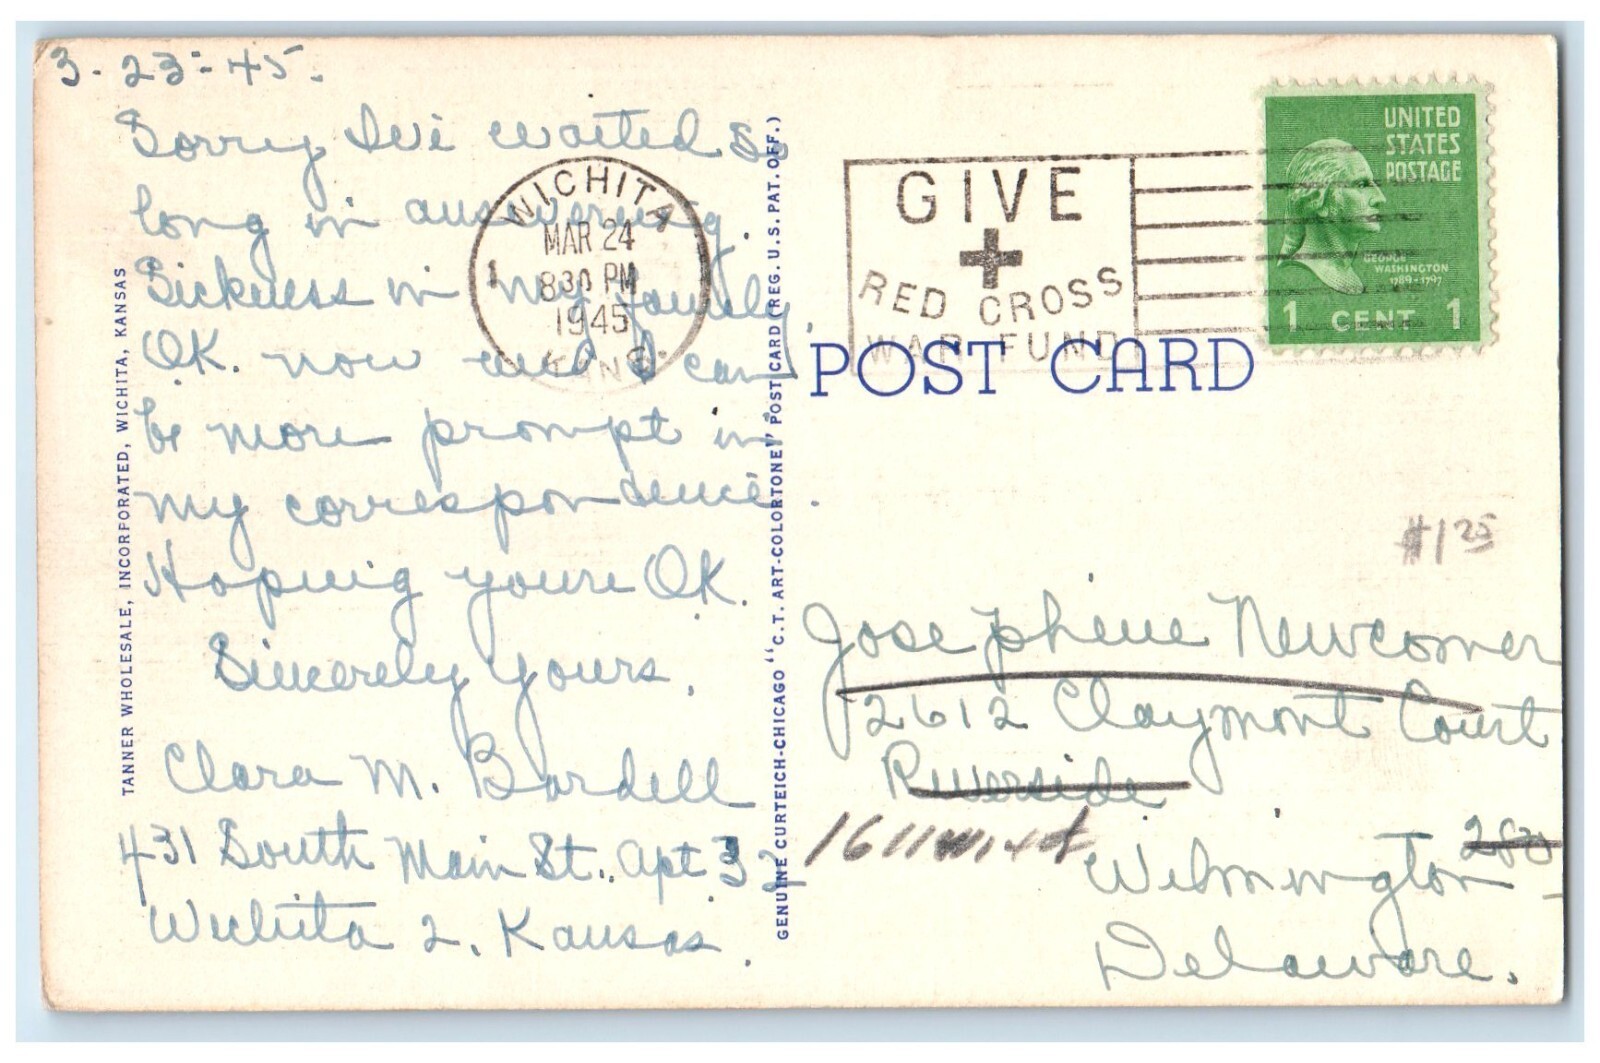 3-23-45.
Sorry I've waited so
long in answering.
Sickness in my family.
OK. now and I can
be more prompt in
my correspondence.
Hoping you're OK.
Sincerely yours,
Clara M. Bardell
431 South Main St. Apt 32
Wichita 2, Kansas.
TANNER WHOLESALE, INCORPORATED, WICHITA, KANSAS
GENUINE CURTEICH-CHICAGO "C.T. ART-COLORTONE" POST CARD (REG. U.S. PAT. OFF.)
WICHITA
MAR 24
830 PM
1945
KANS.
1
GIVE
RED CROSS
WAR FUND
UNITED
STATES
POSTAGE
GEORGE
WASHINGTON
1789-1797
1 CENT 1
POST CARD
#1 25
Josephine Newcomer
2612 Claymont Court
Riverside
1611 W
Wilmington 280
Delaware.